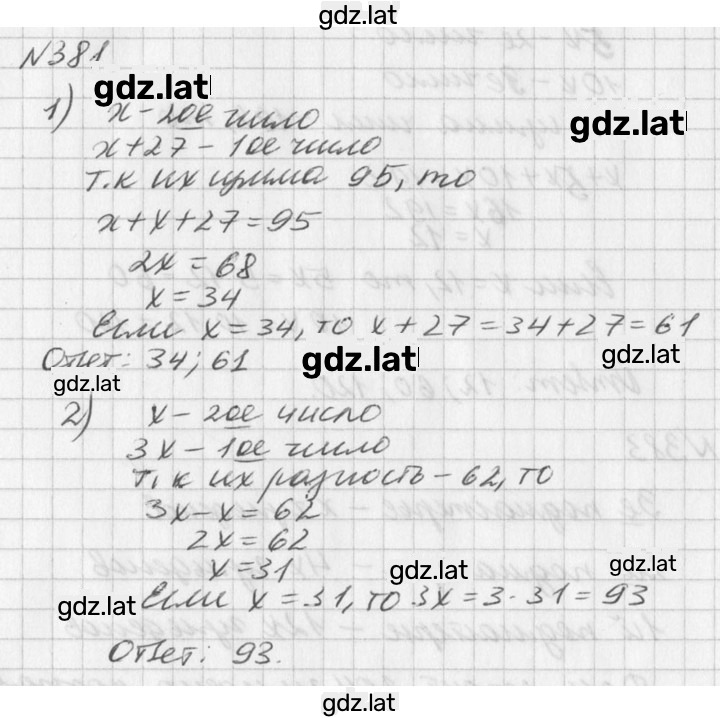 gdz.latl
N381
gdz.latl
1) x - 2ое число
gdz.latl
x + 27 - 1ое число
т.к их сумма 95, то
x + x + 27 = 95
2x = 68
x = 34
Если x = 34, то x + 27 = 34 + 27 = 61
Ответ: 34; 61
gdz.latl
gdz.latl
gdz.latl
2) x - 2ое число
3x - 1ое число
т.к их разность - 62, то
3x - x = 62
2x = 62
x = 31
gdz.latl
gdz.latl
Если x = 31, то 3x = 3 · 31 = 93
gdz.latl
Ответ: 93.
gdz.latl